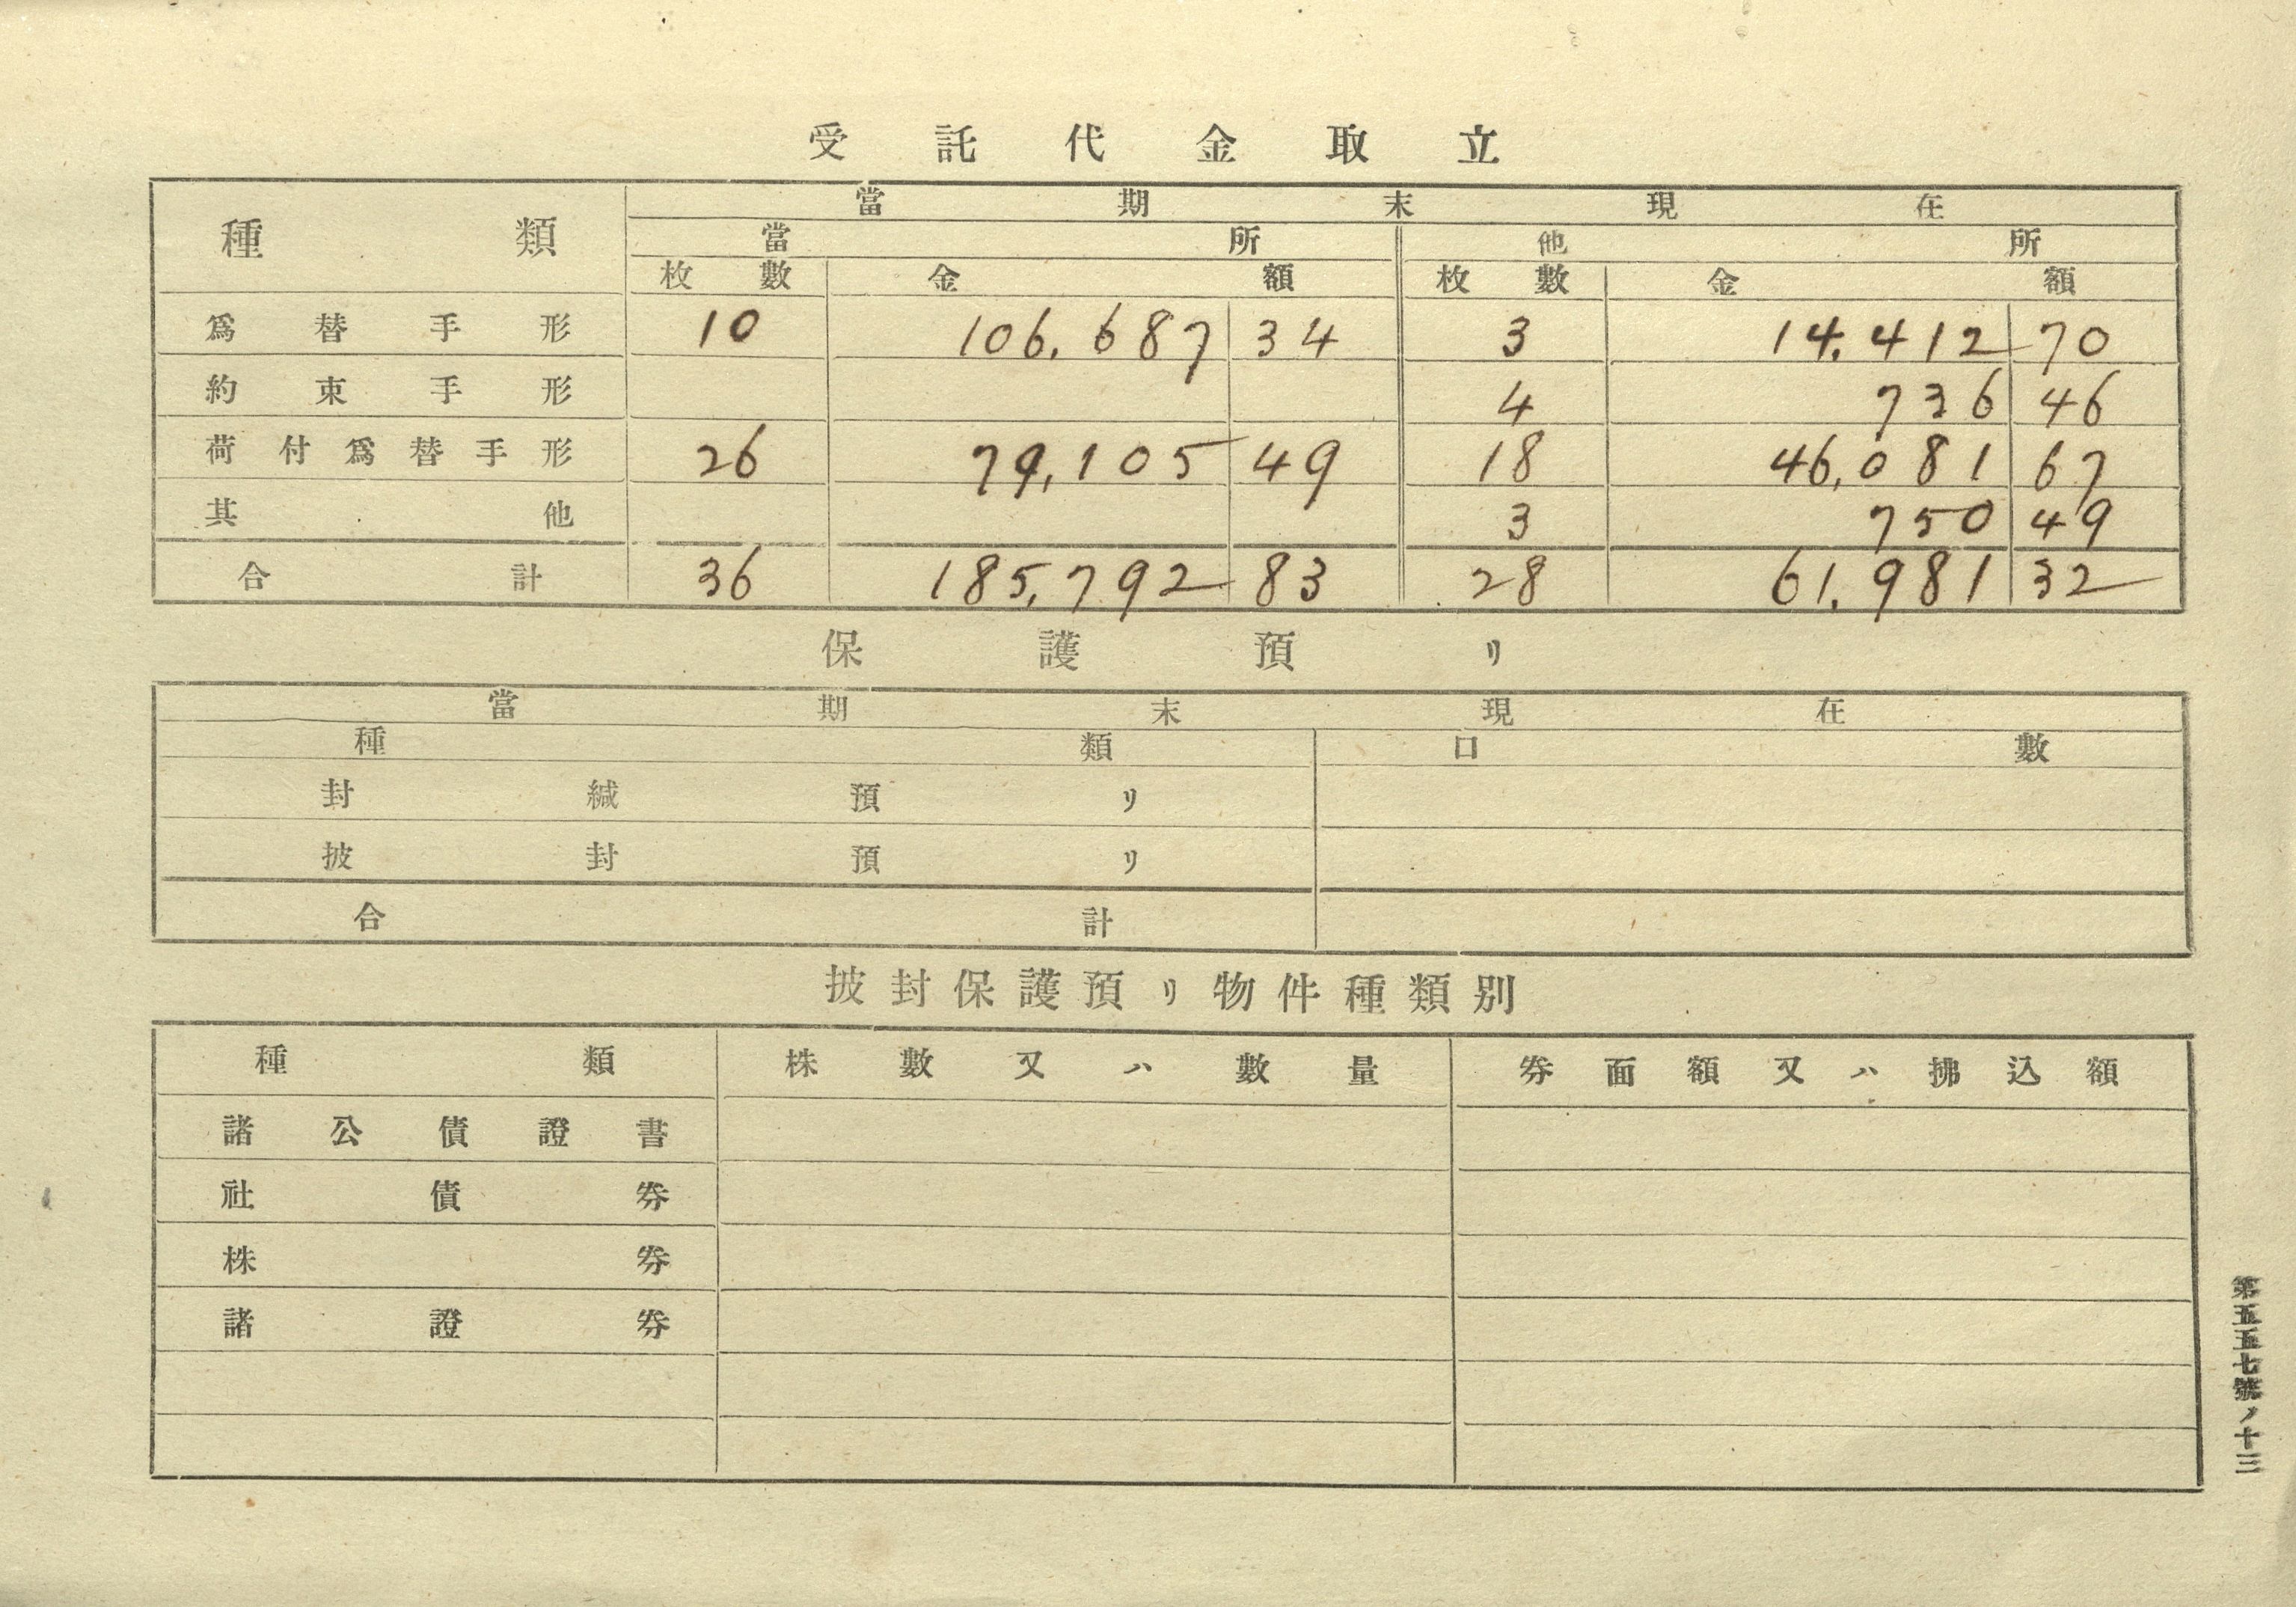 受託代金取立
種類 當期末現在
當所 他所
枚數 金額 枚數 金額
爲替手形 10 106,687 34 3 14,412 70
約束手形 4 736 46
荷付爲替手形 26 79,105 49 18 46,081 67
其他 3 750 49
合計 36 185,792 83 28 61,981 32
保護預リ
當期末現在
種類 口數
封緘預リ
披封預リ
合計
披封保護預リ物件種類別
種類 株數又ハ數量 券面額又ハ拂込額
諸公債證書
社債券
株券
諸證券
第五五七號ノ十三